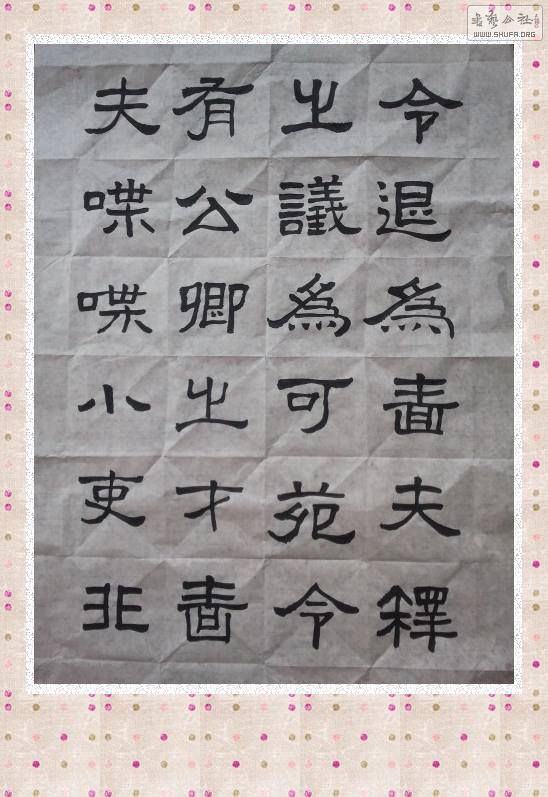 令退爲嗇夫釋
之議爲可苑令
有公卿之才嗇
夫喋喋小吏非
書藝公社
WWW.SHUFA.ORG